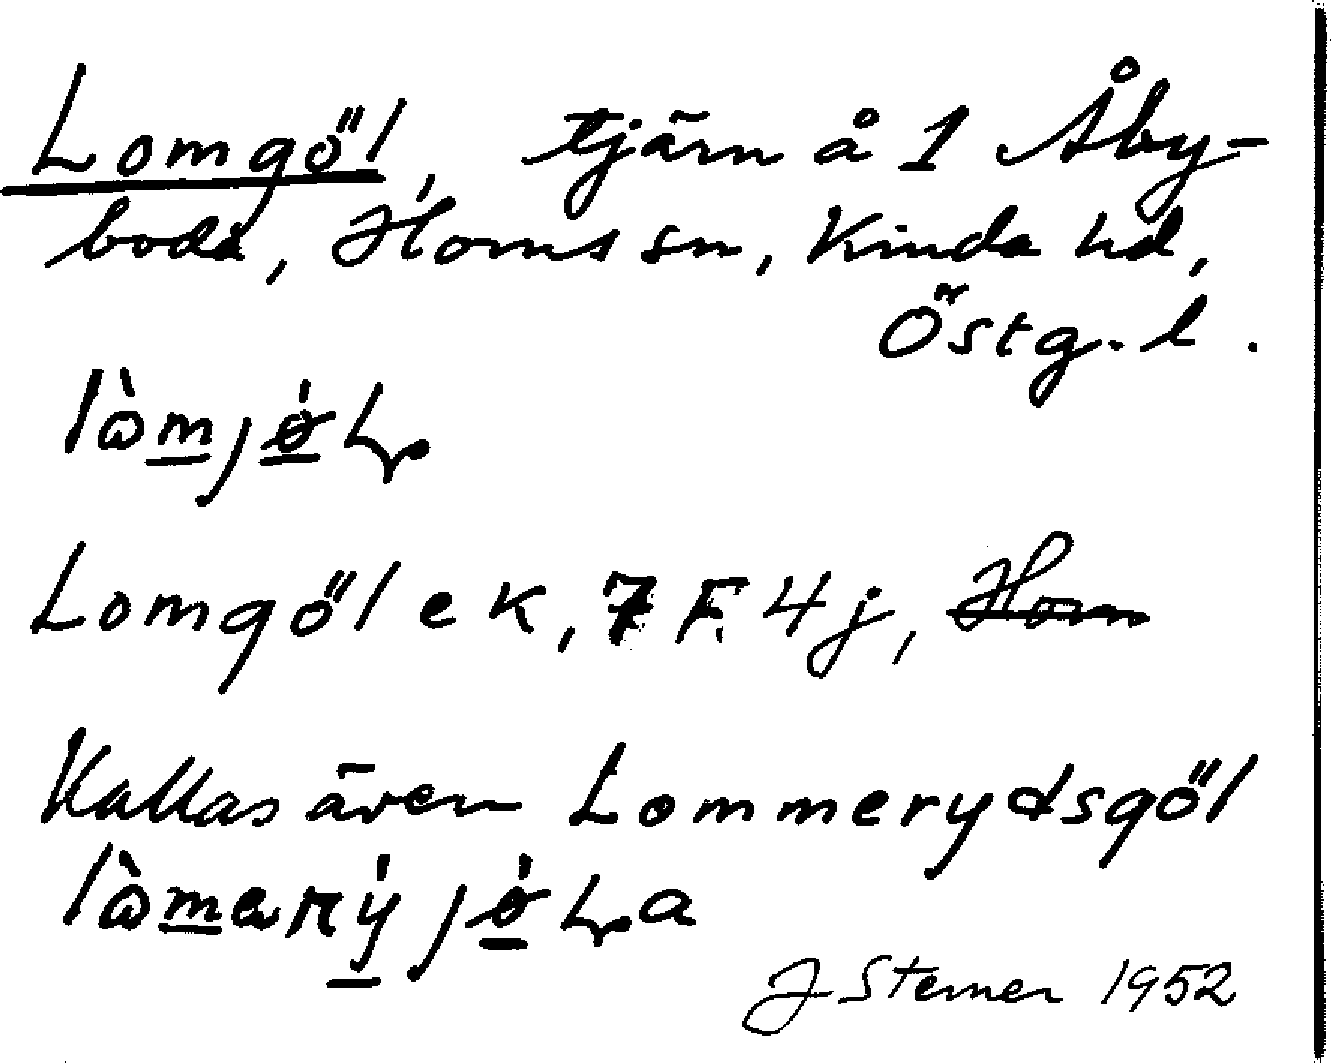 Lomgöl, tjärn å 1 Åby-
boda, Horns sn, Kinda hd,
Östg. l.
Lomgöl ek, 7 F 4 j, Horn
Kallas även Lommerydsgöl
J Sterner 1952